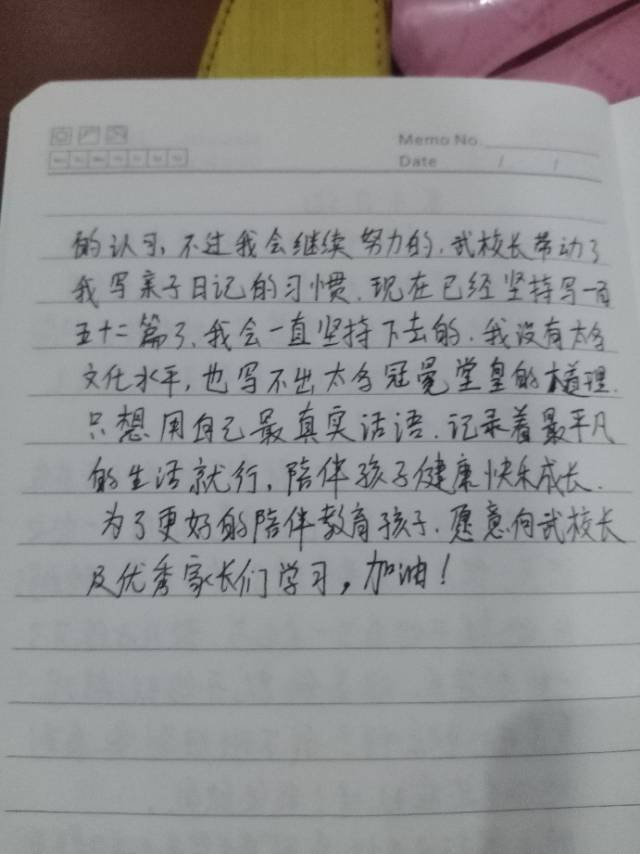 Memo No.
Date / /
的认可,不过我会继续努力的,武校长带动了
我写亲子日记的习惯,现在已经坚持写一百
五十二篇了,我会一直坚持下去的,我没有太多
文化水平,也写不出太多冠冕堂皇的大道理,
只想用自己最真实话语,记录着最平凡
的生活就行,陪伴孩子健康快乐成长.
为了更好的陪伴教育孩子,愿意向武校长
及优秀家长们学习,加油!